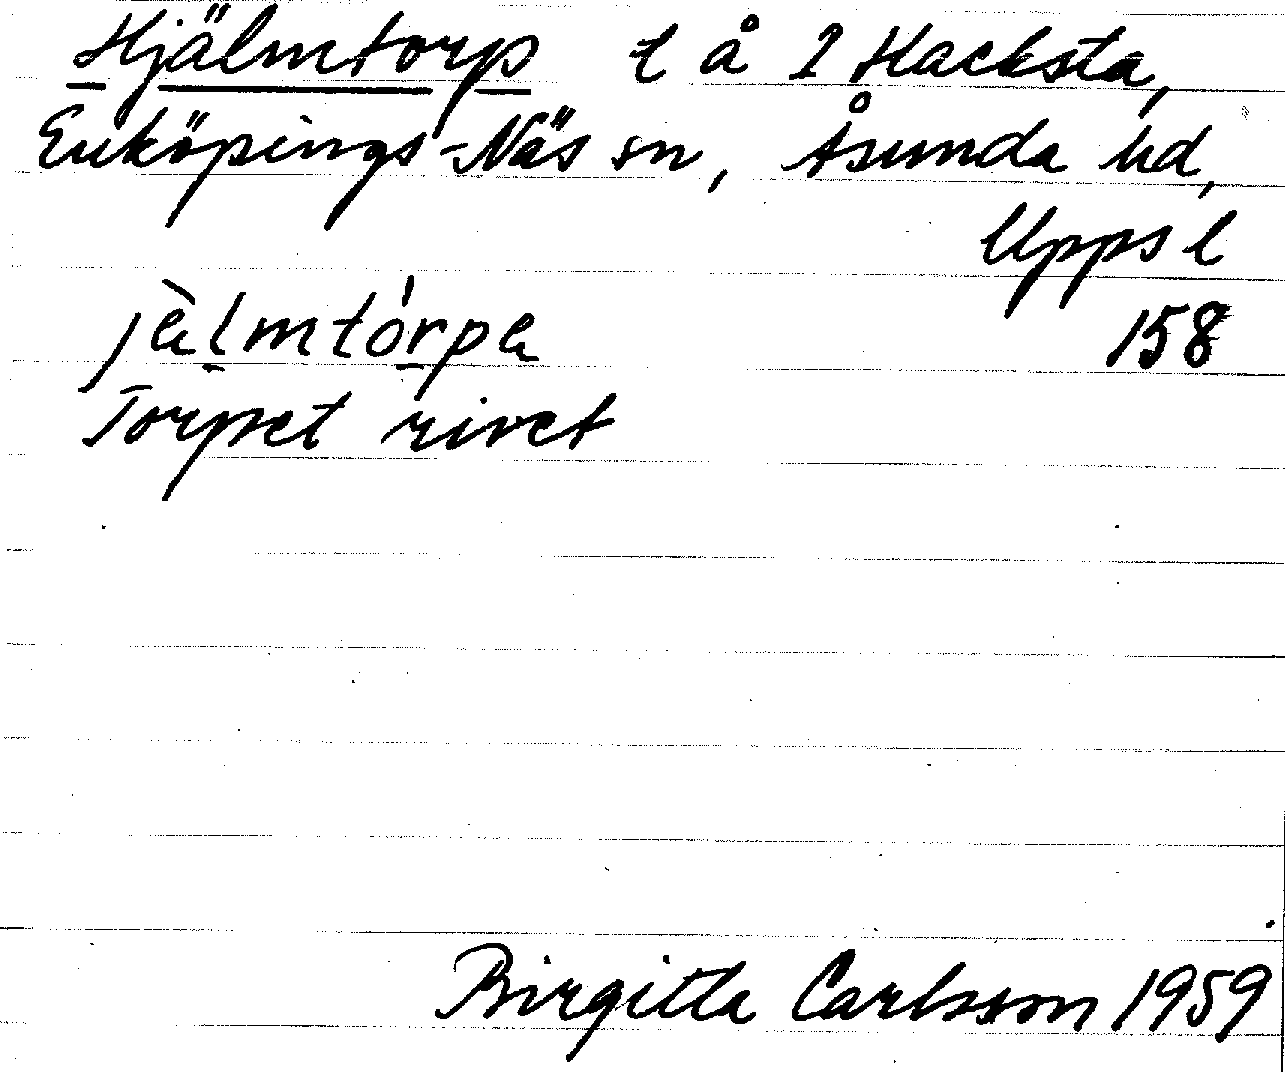 Hjälmtorp t å 2 Hacksta,
Enköpings-Näs sn, Åsunda hd,
Upps l
jèlmtórpa
158
Torpet rivet
Birgitta Carlsson 1959